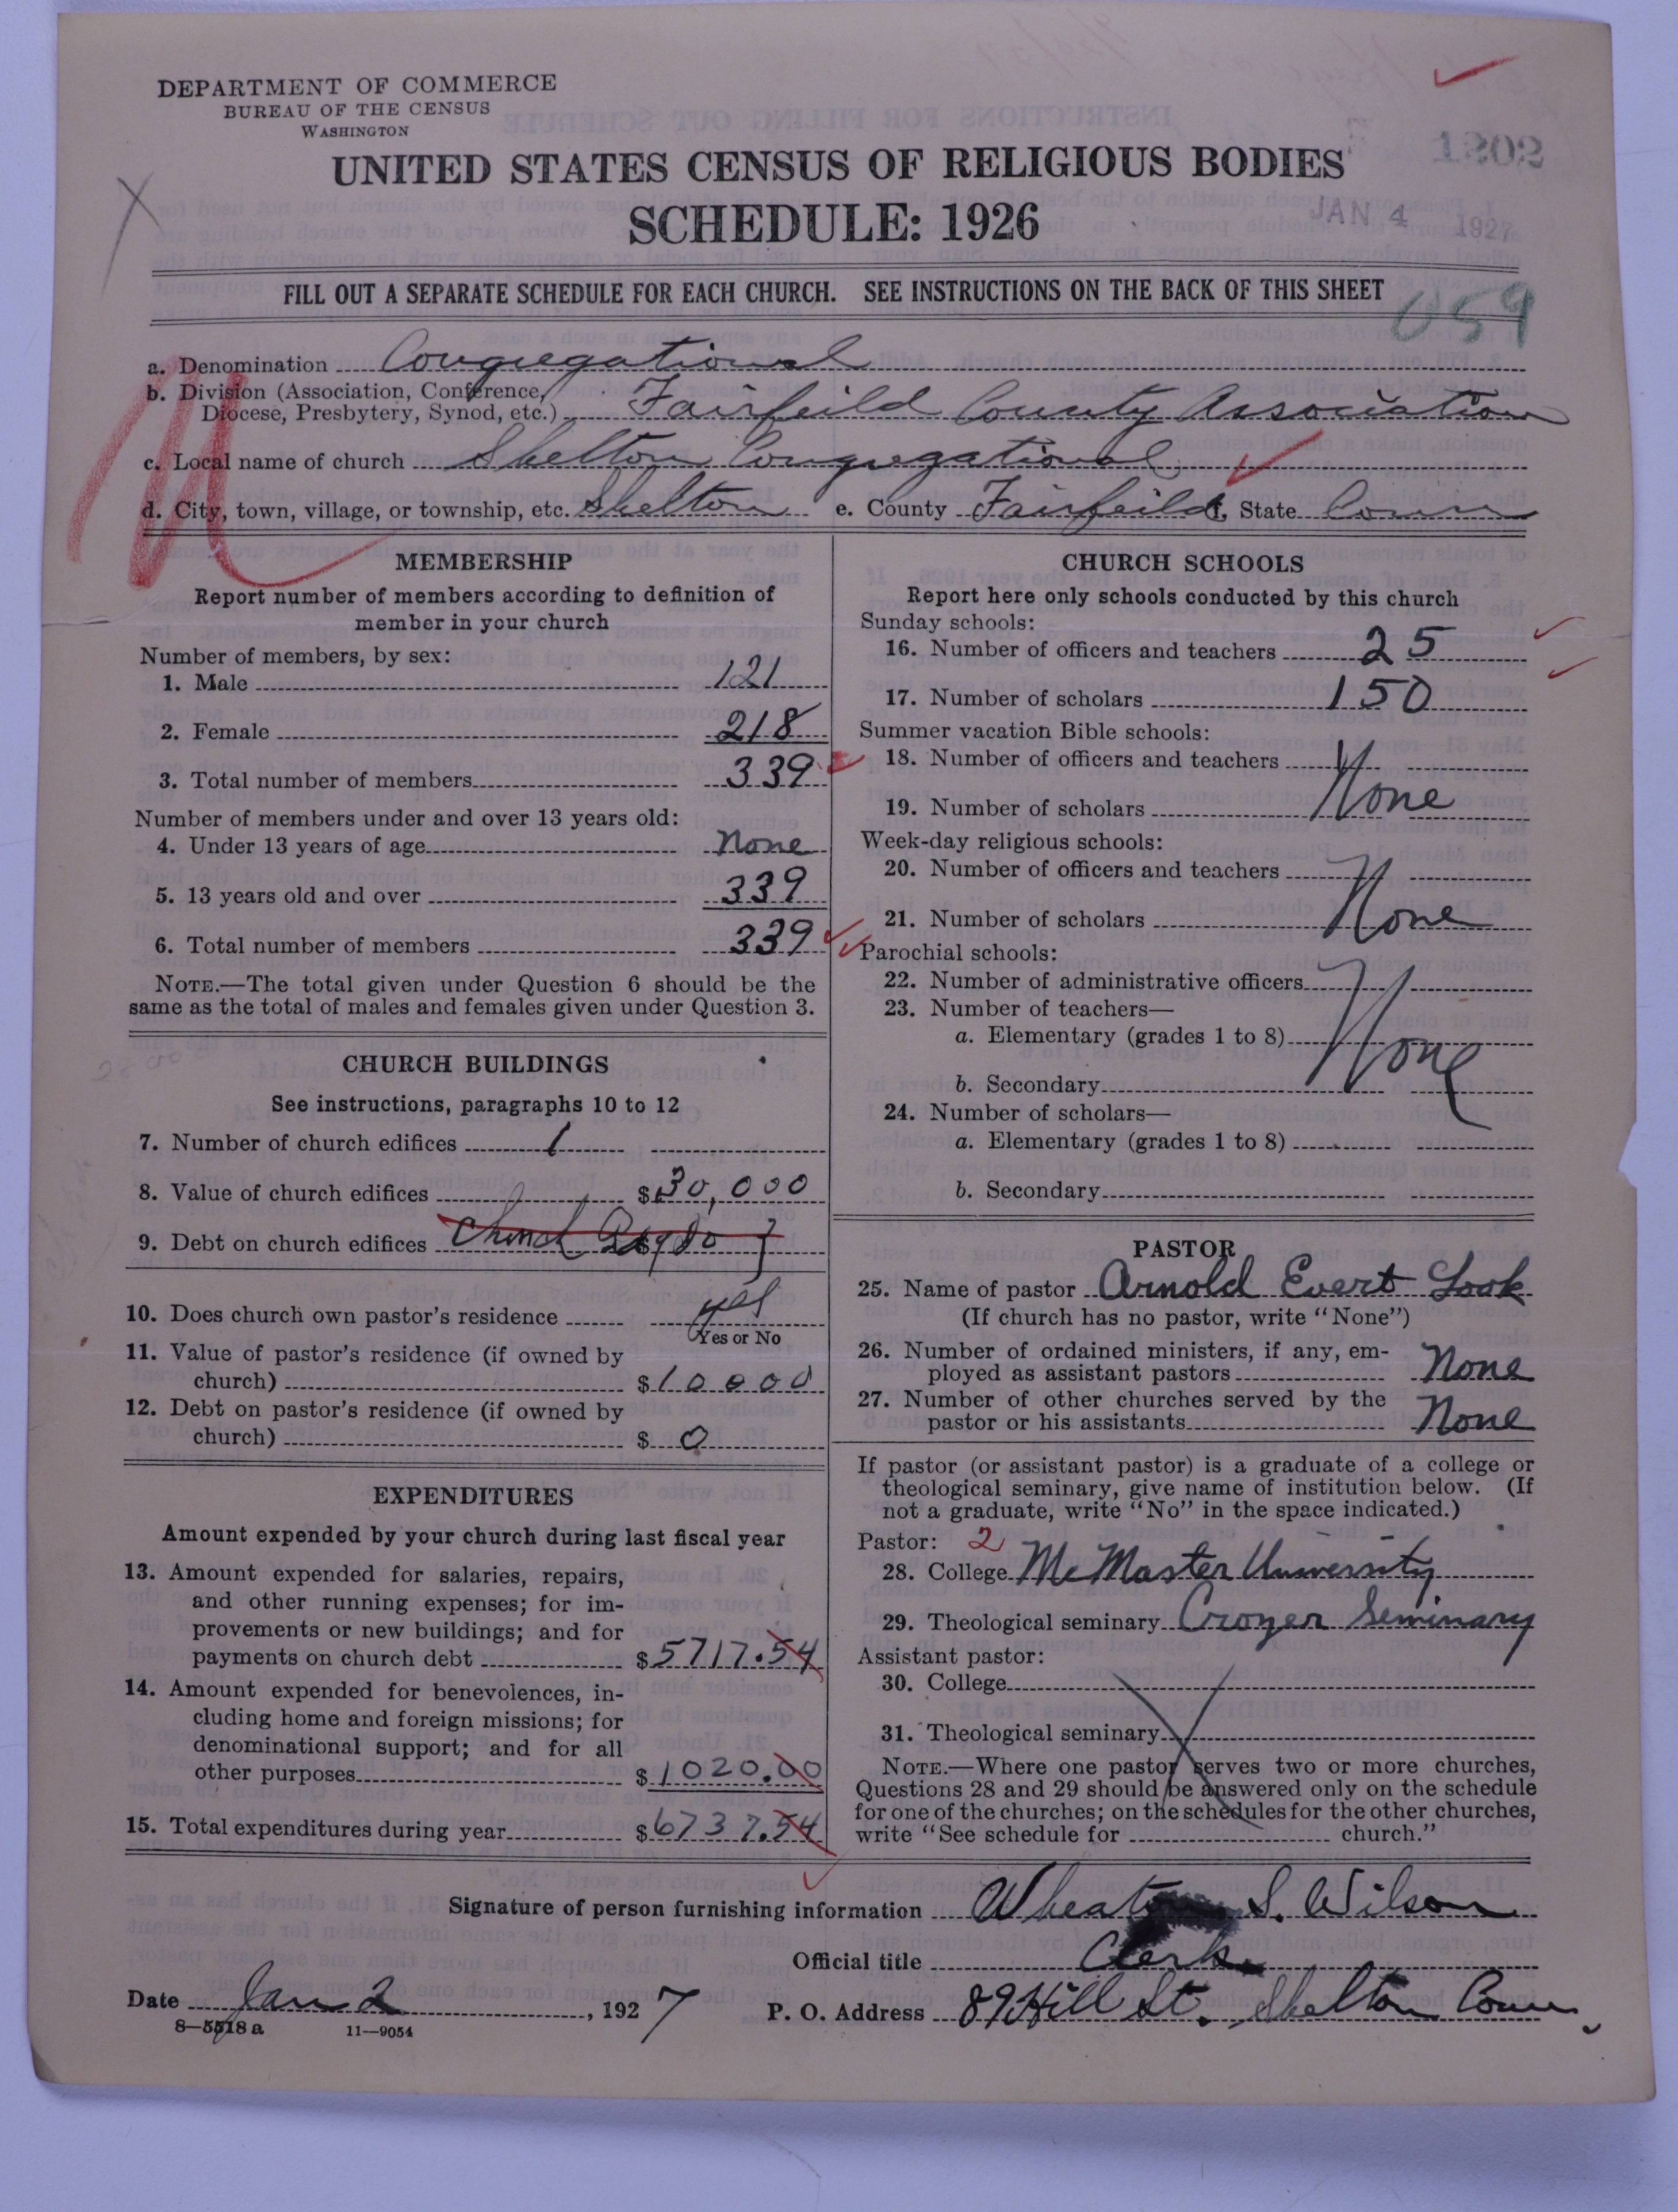 DEPARTMENT OF COMMERCE
BUREAU OF THE CENSUS
WASHINGTON
UNITED STATES CENSUS OF RELIGIOUS BODIES
SCHEDULE: 1926
1202
JAN 4 1927
FILL OUT A SEPARATE SCHEDULE FOR EACH CHURCH. SEE INSTRUCTIONS ON THE BACK OF THIS SHEET
059
a. Denomination Congregational
b. Division (Association, Conference,
Diocese, Presbytery, Synod, etc.) Fairfeild County Association
c. Local name of church Shelton Congregational
d. City, town, village, or township, etc. Shelton e. County Fairfeild f. State Conn
MEMBERSHIP
Report number of members according to definition of
member in your church
Number of members, by sex:
1. Male 121
2. Female 218
3. Total number of members 339
Number of members under and over 13 years old:
4. Under 13 years of age None
5. 13 years old and over 339
6. Total number of members 339
NOTE.—The total given under Question 6 should be the
same as the total of males and females given under Question 3.
CHURCH BUILDINGS
See instructions, paragraphs 10 to 12
7. Number of church edifices 1
8. Value of church edifices $30,000
9. Debt on church edifices Church $
10. Does church own pastor's residence yes
Yes or No
11. Value of pastor's residence (if owned by
church) $10000
12. Debt on pastor's residence (if owned by
church) $ 0
EXPENDITURES
Amount expended by your church during last fiscal year
13. Amount expended for salaries, repairs,
and other running expenses; for im-
provements or new buildings; and for
payments on church debt $5717.54
14. Amount expended for benevolences, in-
cluding home and foreign missions; for
denominational support; and for all
other purposes $1020.00
15. Total expenditures during year $6737.54
CHURCH SCHOOLS
Report here only schools conducted by this church
Sunday schools:
16. Number of officers and teachers 25
17. Number of scholars 150
Summer vacation Bible schools:
18. Number of officers and teachers
19. Number of scholars None
Week-day religious schools:
20. Number of officers and teachers
21. Number of scholars None
Parochial schools:
22. Number of administrative officers
23. Number of teachers—
a. Elementary (grades 1 to 8) None
b. Secondary
24. Number of scholars—
a. Elementary (grades 1 to 8)
b. Secondary
PASTOR
25. Name of pastor Arnold Evert Look
(If church has no pastor, write "None")
26. Number of ordained ministers, if any, em-
ployed as assistant pastors None
27. Number of other churches served by the
pastor or his assistants None
If pastor (or assistant pastor) is a graduate of a college or
theological seminary, give name of institution below. (If
not a graduate, write "No" in the space indicated.)
Pastor: 2
28. College McMaster University
29. Theological seminary Crozer Seminary
Assistant pastor:
30. College
31. Theological seminary
NOTE.—Where one pastor serves two or more churches,
Questions 28 and 29 should be answered only on the schedule
for one of the churches; on the schedules for the other churches,
write "See schedule for church."
Signature of person furnishing information Wheaton S. Wilson
Official title Clerk
Date Jan 2, 1927 P. O. Address 89 Hill St. Shelton Conn
8—5518 a 11—9054